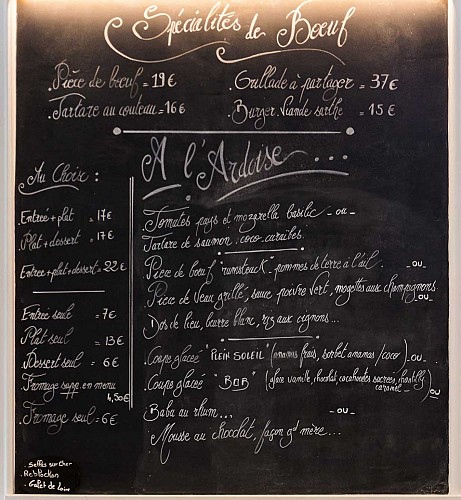 Spécialités de Boeuf
Pièce de boeuf = 19€
Grillade à partager = 37€
Tartare au couteau = 16€
Burger Viande sarthe = 15€
A l'Ardoise...
Au Choix :
Entrée + plat = 17€
Plat + dessert = 17€
Entrée + plat + dessert = 22€
Entrée seule = 7€
Plat seul = 13€
Dessert seul = 6€
Fromage supp. en menu
4,50€
Fromage seul = 6€
. Selles sur Cher
. Reblochon
. Galet de Loire
Tomates pays et mozzarella basilic - ou -
Tartare de saumon coco-caraïbes.
Pièce de boeuf "rumsteack" pommes de terre à l'ail. - ou -
Pièce de Veau grillé, sauce poivre vert, mogettes aux champignons
- ou -
Dos de lieu, beurre blanc, riz aux oignons...
Coupe glacée "PLEIN SOLEIL" (ananas frais, sorbet ananas / coco) - ou -
Coupe glacée "BOB" (glace vanille, chocolat, cacahuètes sucrées, chantilly
caramel - ou
Baba au rhum... - ou -
Mousse au chocolat, façon gd mère...